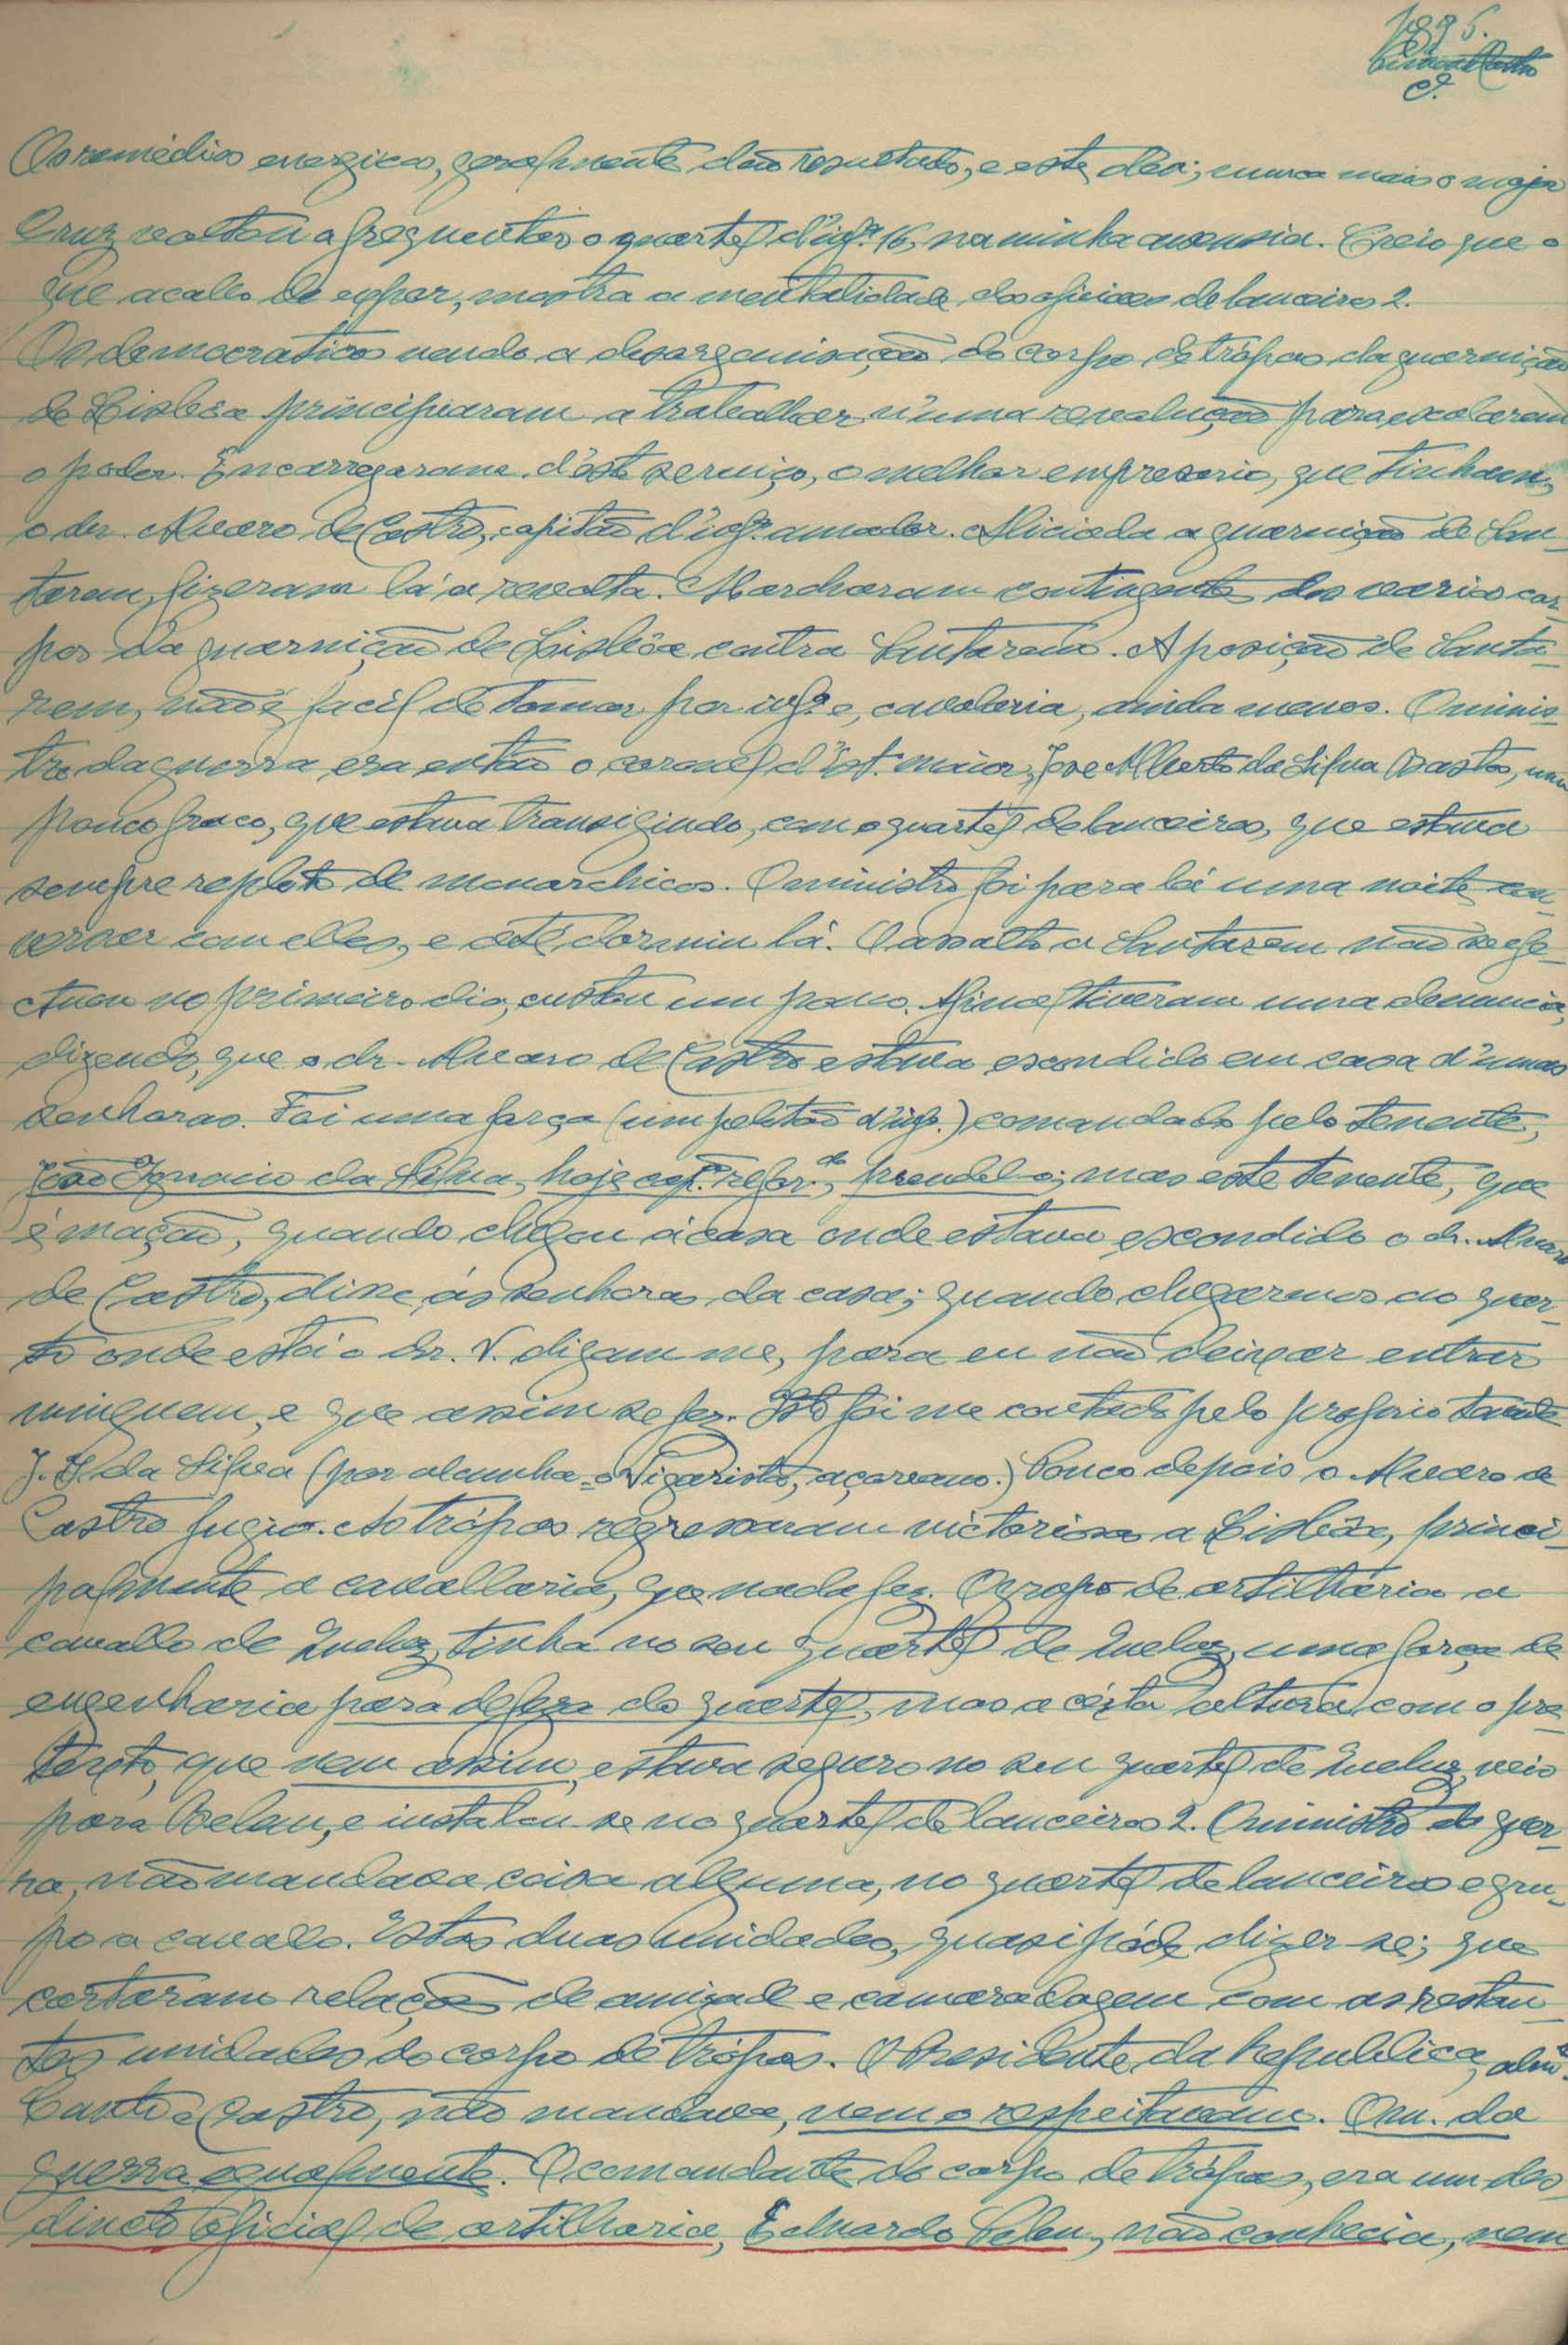 1895.
Os remédios energicos, geralmente dão resultado, e este deu; nunca mais o major
Cruz voltou a frequentar o quartel d'inf.ª 16, na minha ausensia. Creio que o
que acabo de expor, mostra a mentalidade dos oficiaes de lanceiros 2.
Os democraticos vendo a desorganisação do corpo de trópas da guarnição
de Lisbôa principiaram a trabalhar n'uma revolução para escalarem
o poder. Encarregaram d'este serviço, o melhor empresario, que tinham,
o dr. Alvaro de Castro, capitão d'inf.ª amador. Aliciada a guarnição de San-
tarem, fizeram lá a revolta. Marcharam contingentes dos varios cor-
pos da guarnição de Lisbôa contra Santarem. A posição de Santa-
rem, não é facil de tomar por inf.ª e, cavalaria, ainda menos. O minis-
tro da guerra, era então o coronel d'est. maior, José Alberto da Silva Bastos, um
pouco fraco, que estava transigindo, com o quartel de lanceiros, que estava
sempre repleto de monarchicos. O ministro foi para lá uma noite con-
versar com elles, e até dormiu lá. O assalto a Santarem não se efe-
ctuou no primeiro dia, custou um pouco. Afinal tiveram uma denuncia,
dizendo, que o dr. Alvaro de Castro estava escondido em casa d'umas
senhoras. Foi uma força (um pelotão d'inf.) comandada pelo tenente,
João Ignacio da Silva, hoje cap. refor.do, prendel-o; mas este tenente, que
é maçao, quando chegou á casa onde estava escondido o dr. Alvaro
de Castro, disse ás senhoras da casa; quando chegarmos ao quar-
to onde está o dr. V. digam me, para eu não deixar entrar
ninguem, e que assim se fez. Isto foi me contado pelo proprio tenente
J. I. da Silva (por alcunha = o Vigarista, açoreano.) Pouco depois o Alvaro de
Castro fugio. As trópas regressaram victoriosas a Lisbôa, princi-
palmente a cavallaria, que nada fez. O grupo de artilharia a
cavallo de Queluz, tinha no seu quartel de Queluz, uma força de
engenharia para defeza do quartel, mas a cérta altura, com o pre-
texto, que nem assim, estava seguro no seu quartel de Queluz, veio
para Belem, e instalou-se no quartel de lanceiros 2. O ministro da guer-
ra, não mandava coisa alguma, no quartel de lanceiros e gru-
po a cavallo. Estas duas unidades, quasi póde dizer-se; que
cortaram relações de amizade e camaradagem com as restan-
tes unidades do corpo de trópas. O Presidente da Republica, alm.e
Canto e Castro, não mandava, nem o respeitavam. O m. da
guerra egualmente. O comandante do corpo de trópas, era um des-
tincto oficial de artilharia, Eduardo, não conhecia, nem